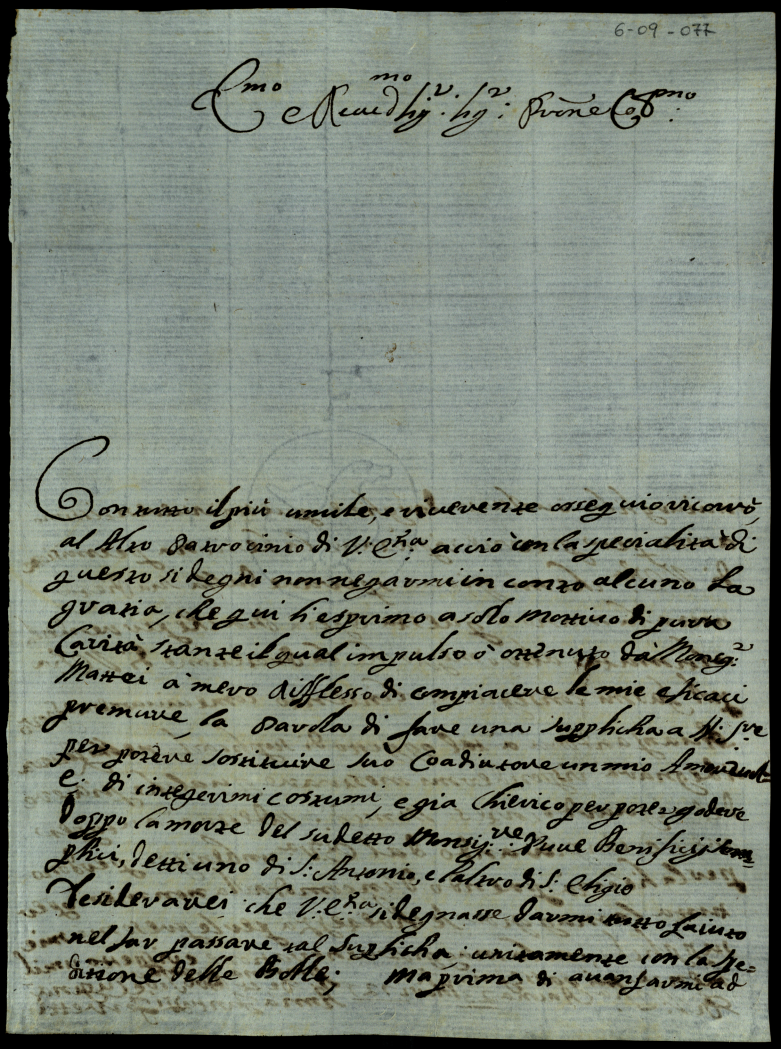 6-09-077
Emo e Revmo Sigr: Sigr: Prone Colmo:
Con tutto il più umile, e riverente ossequio ricorro,
al Alto Patrocinio di V: Eza acciò con la specialità di
questo si degni non negarmi in conto alcuno la
grazia, che qui li esprimo a solo mottivo di pura
Carità, stante il qual impulso ò ottenuto da Monsigr:
Mattei à mero rifflesso di compiacere le mie eficaci
premure, la Parola di fare una supplicha a N: Sre
per potere sostituire suo Coadiutore un mio
e di integerimi costumi, e gia Chierico per poter godere
doppo la morte del sudetto Monsigre: Due Benificij sem=
plici, detti uno di S: Antonio, e l'altro di S: Eligio
Desiderarei che V: Eza si degnasse darmi tutto l'aiuto
nel far passare tal Supplicha unitamente con la spe=
dizione delle Bolle; ma prima di avanzarmi ad